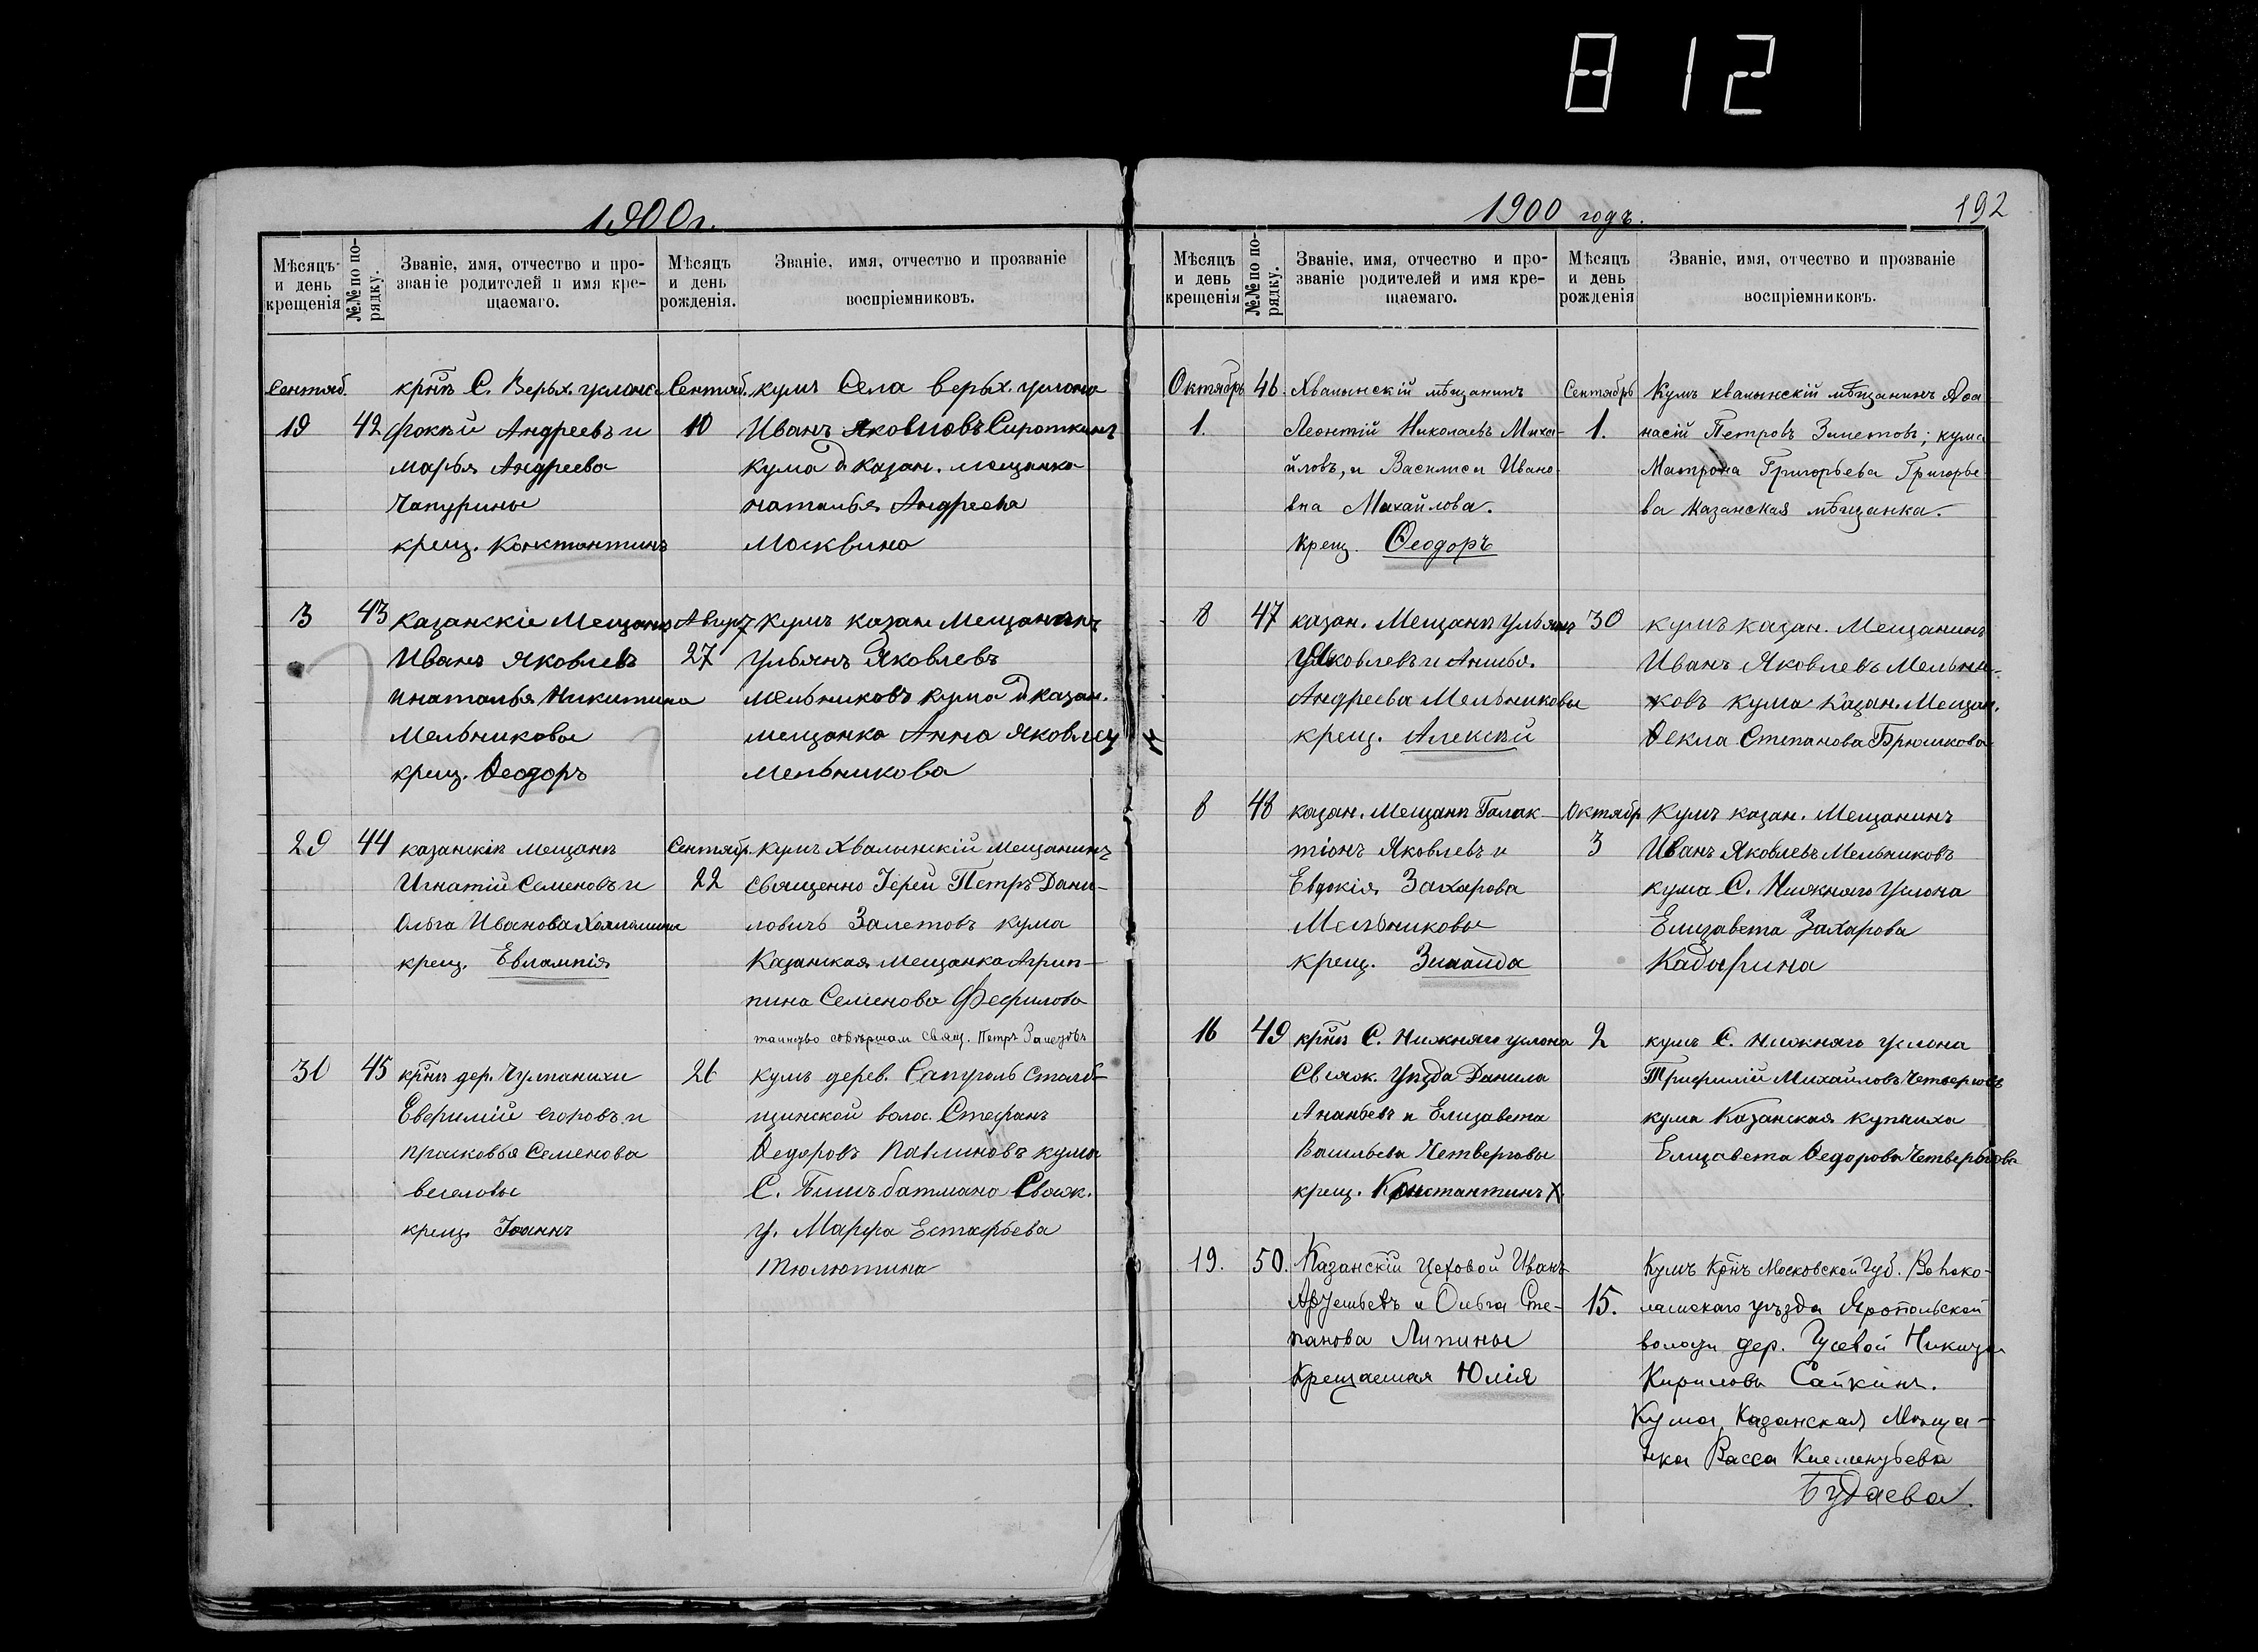 812
1900 г.
Мѣсяцъ и день крещенія
№№ по порядку.
Званіе, имя, отчество и про-
званіе родителей и имя кре-
щаемаго.
Мѣсяцъ и день рожденія.
Званіе, имя, отчество и прозваніе
воспріемниковъ.
Сентяб.
19
42
крнъ С. Верьх. услона
Фокей Андреевъ и
марья Андреева
Чапурины
крещ. Константинъ
Сентяб.
10
кумъ Села верьх. услона
Иванъ Яковловъ Сироткинъ
кума казан. мещанка
наталья Андреева
Москвина
3
43
казанскіе Мещане
Иванъ Яковлевъ
и наталья Никитина
Мельниковы
крещ. Ѳеодоръ
27
кумъ казан. Мещанинъ
Ульянъ Яковлевъ
Мельниковъ кума казан.
мещанка Анна Яковлев
Мельникова
29
44
казанскіе мещане
Игнатій Семеновъ и
Ольга Иванова
крещ. Евлампія
Сентябр.
22
кумъ Хвалынскій Мещанинъ
священно Іерей Петръ Дани-
ловичъ Залетовъ кума
Казанская мещанка Агрип-
пина Семенова Фефилова
таинство совершал Свящ. Петръ Залетовъ
45
крнъ дер. Чулпанихи
Евфимій егоровъ и
прасковья Семенова
веселовы
крещ. Іоаннъ
кумъ дерев.
щинской волос. Стефанъ
Ѳедоровъ Павлиновъ кума
С. Бишъбатмано Свіяж.
у. Марфа Естафьева
Тюлютина
1900 годъ.
192
Мѣсяцъ и день крещенія
№№ по порядку.
Званіе, имя, отчество и про-
званіе родителей и имя кре-
щаемаго.
Мѣсяцъ и день рожденія
Званіе, имя, отчество и прозваніе
воспріемниковъ.
Октябрь
1.
46.
Хвалынскій мѣщанинъ
Леонтій Николаевъ Миха-
йловъ, и Василиса Ивано-
вна Михайлова.
Крещ. Ѳеодоръ
Сентябрь
1.
Кумъ хвалынскій мѣщанинъ Аѳа
насій Петровъ Залетовъ; кума
Матрона Григорьева Григорье
ва Казанская мѣщанка.
8
47
казан. Мещане Ульянъ
Яковлевъ и
Андреева Мельниковы
крещ. Алексѣй
30
кумъ казан. Мещанинъ
Иванъ Яковлевъ Мельни-
ковъ кума Казан. Мещан.
Ѳекла Степанова Брюшкова
8
48
казан. Мещане Галак-
тіонъ Яковлевъ и
Евдокія Захарова
Мельниковы
крещ. Зинаида
Октябр
3
Кумъ казан. Мещанинъ
Иванъ Яковлевъ Мельниковъ
кума С. Нижняго Услона
Елизавета Захарова
Кадырина
16
49
крнъ С. Нижняго услона
Свіяж. Уѣзда Данила
Ананьевъ и Елизавета
Васильева Четверговы
крещ. Константинъ
2
кумъ С. Нижняго услона
Трифилій Михайловъ Четверговъ
кума Казанская купчиха
Елизавета Ѳедорова Четвергова
19.
50.
Казанскій Цеховой Иванъ
и Ольга Сте-
панова Липины
Крещаемая Юлія
15.
Кумъ Крнъ Московской губ. Волоко-
ламскаго уѣзда Яропольской
волости дер. Гусевой Никита
Кириловъ Сайкинъ.
Кума, Казанская Мѣща-
нка Васса Клементьева
Будаева.